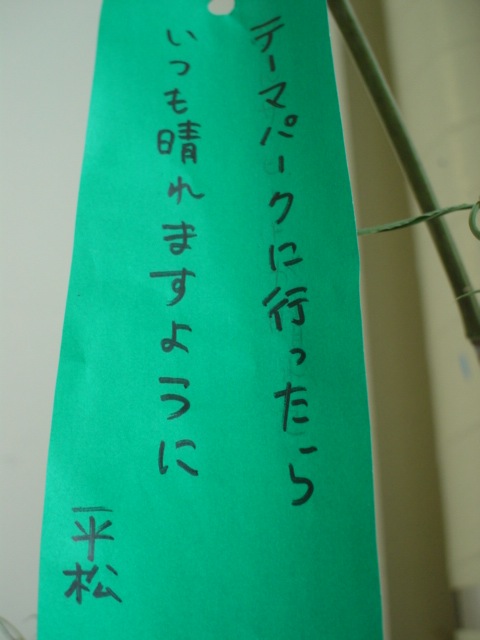 テーマパークに行ったら
いつも晴れますように
平松